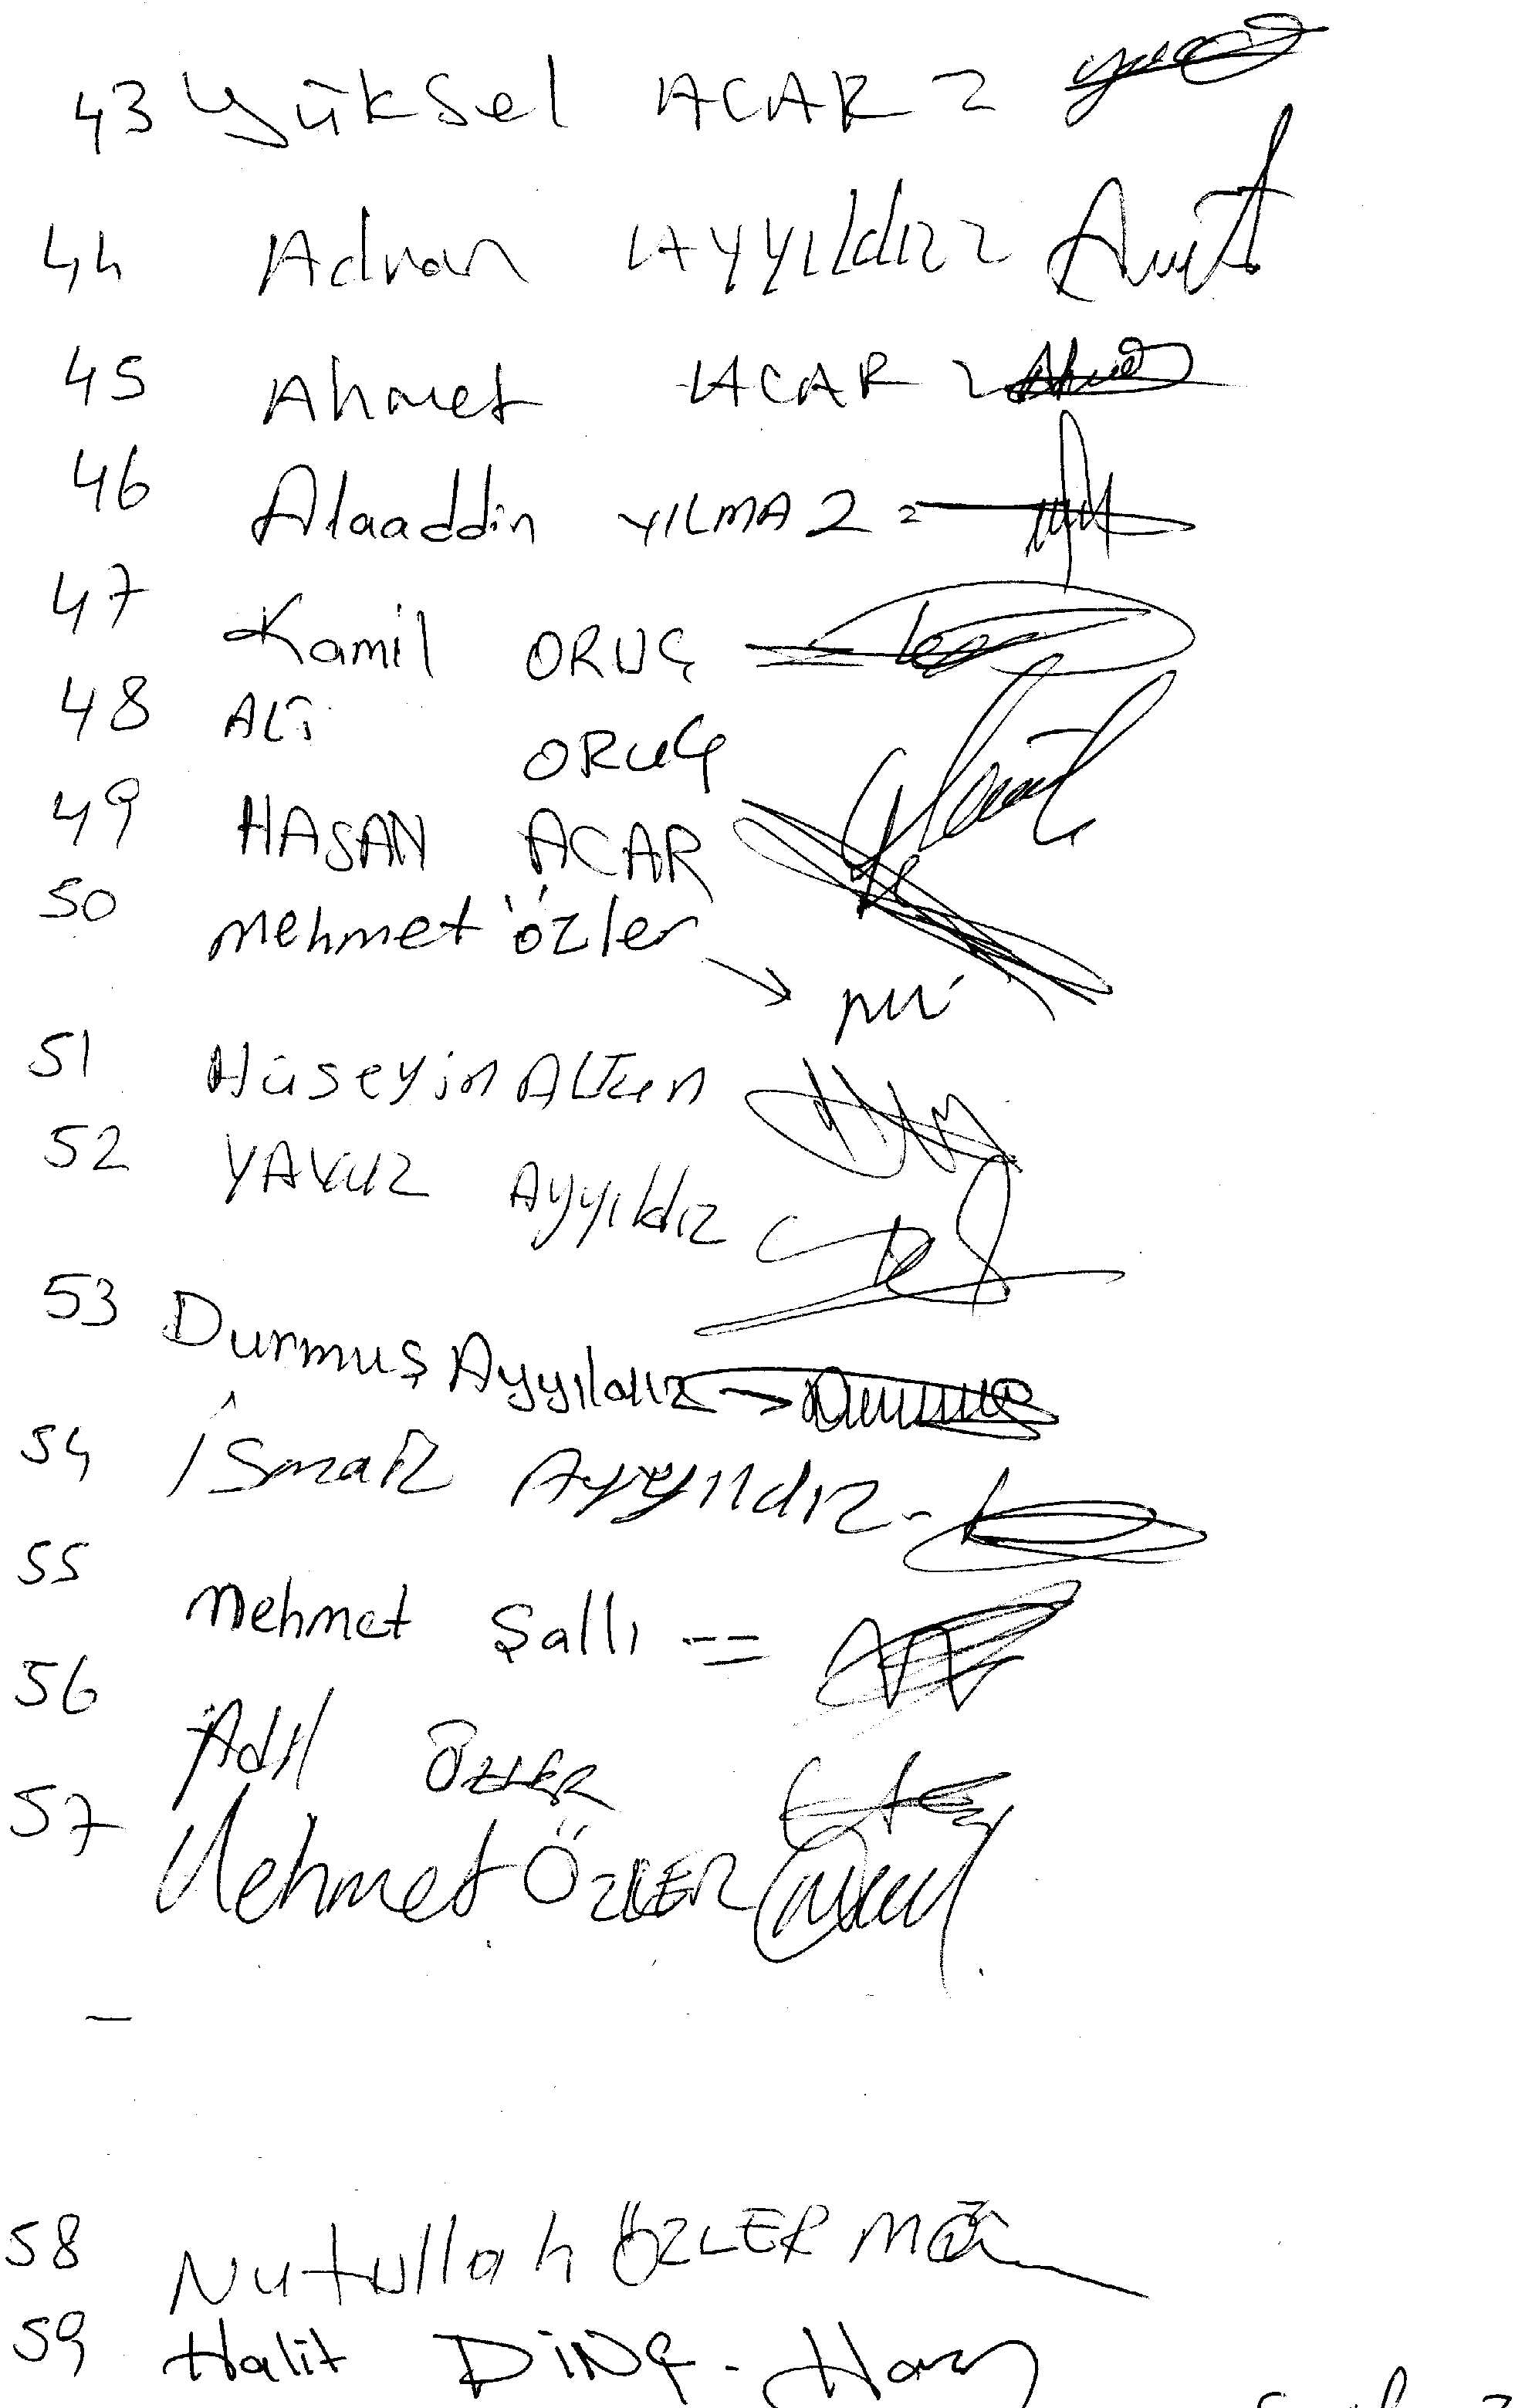 43 Yüksel ACAR =
44 Adnan AYYıldız =
45 Ahmet ACAR =
46 Alaaddin YILMAZ =
47 Kamil ORUÇ
48 ALİ ORUÇ
49 HASAN ACAR
50 Mehmet özler →
51 Hüseyin ALTun
52 YAVUZ Ayyıldız
53 Durmuş Ayyıldız → Durmuş
54 İsmail Ayyıldız -
55 Mehmet Şallı - =
56 Adil ÖZLER
57 Mehmet ÖZLER
58 Nutullah ÖZLER
59 Halit DİNÇ -